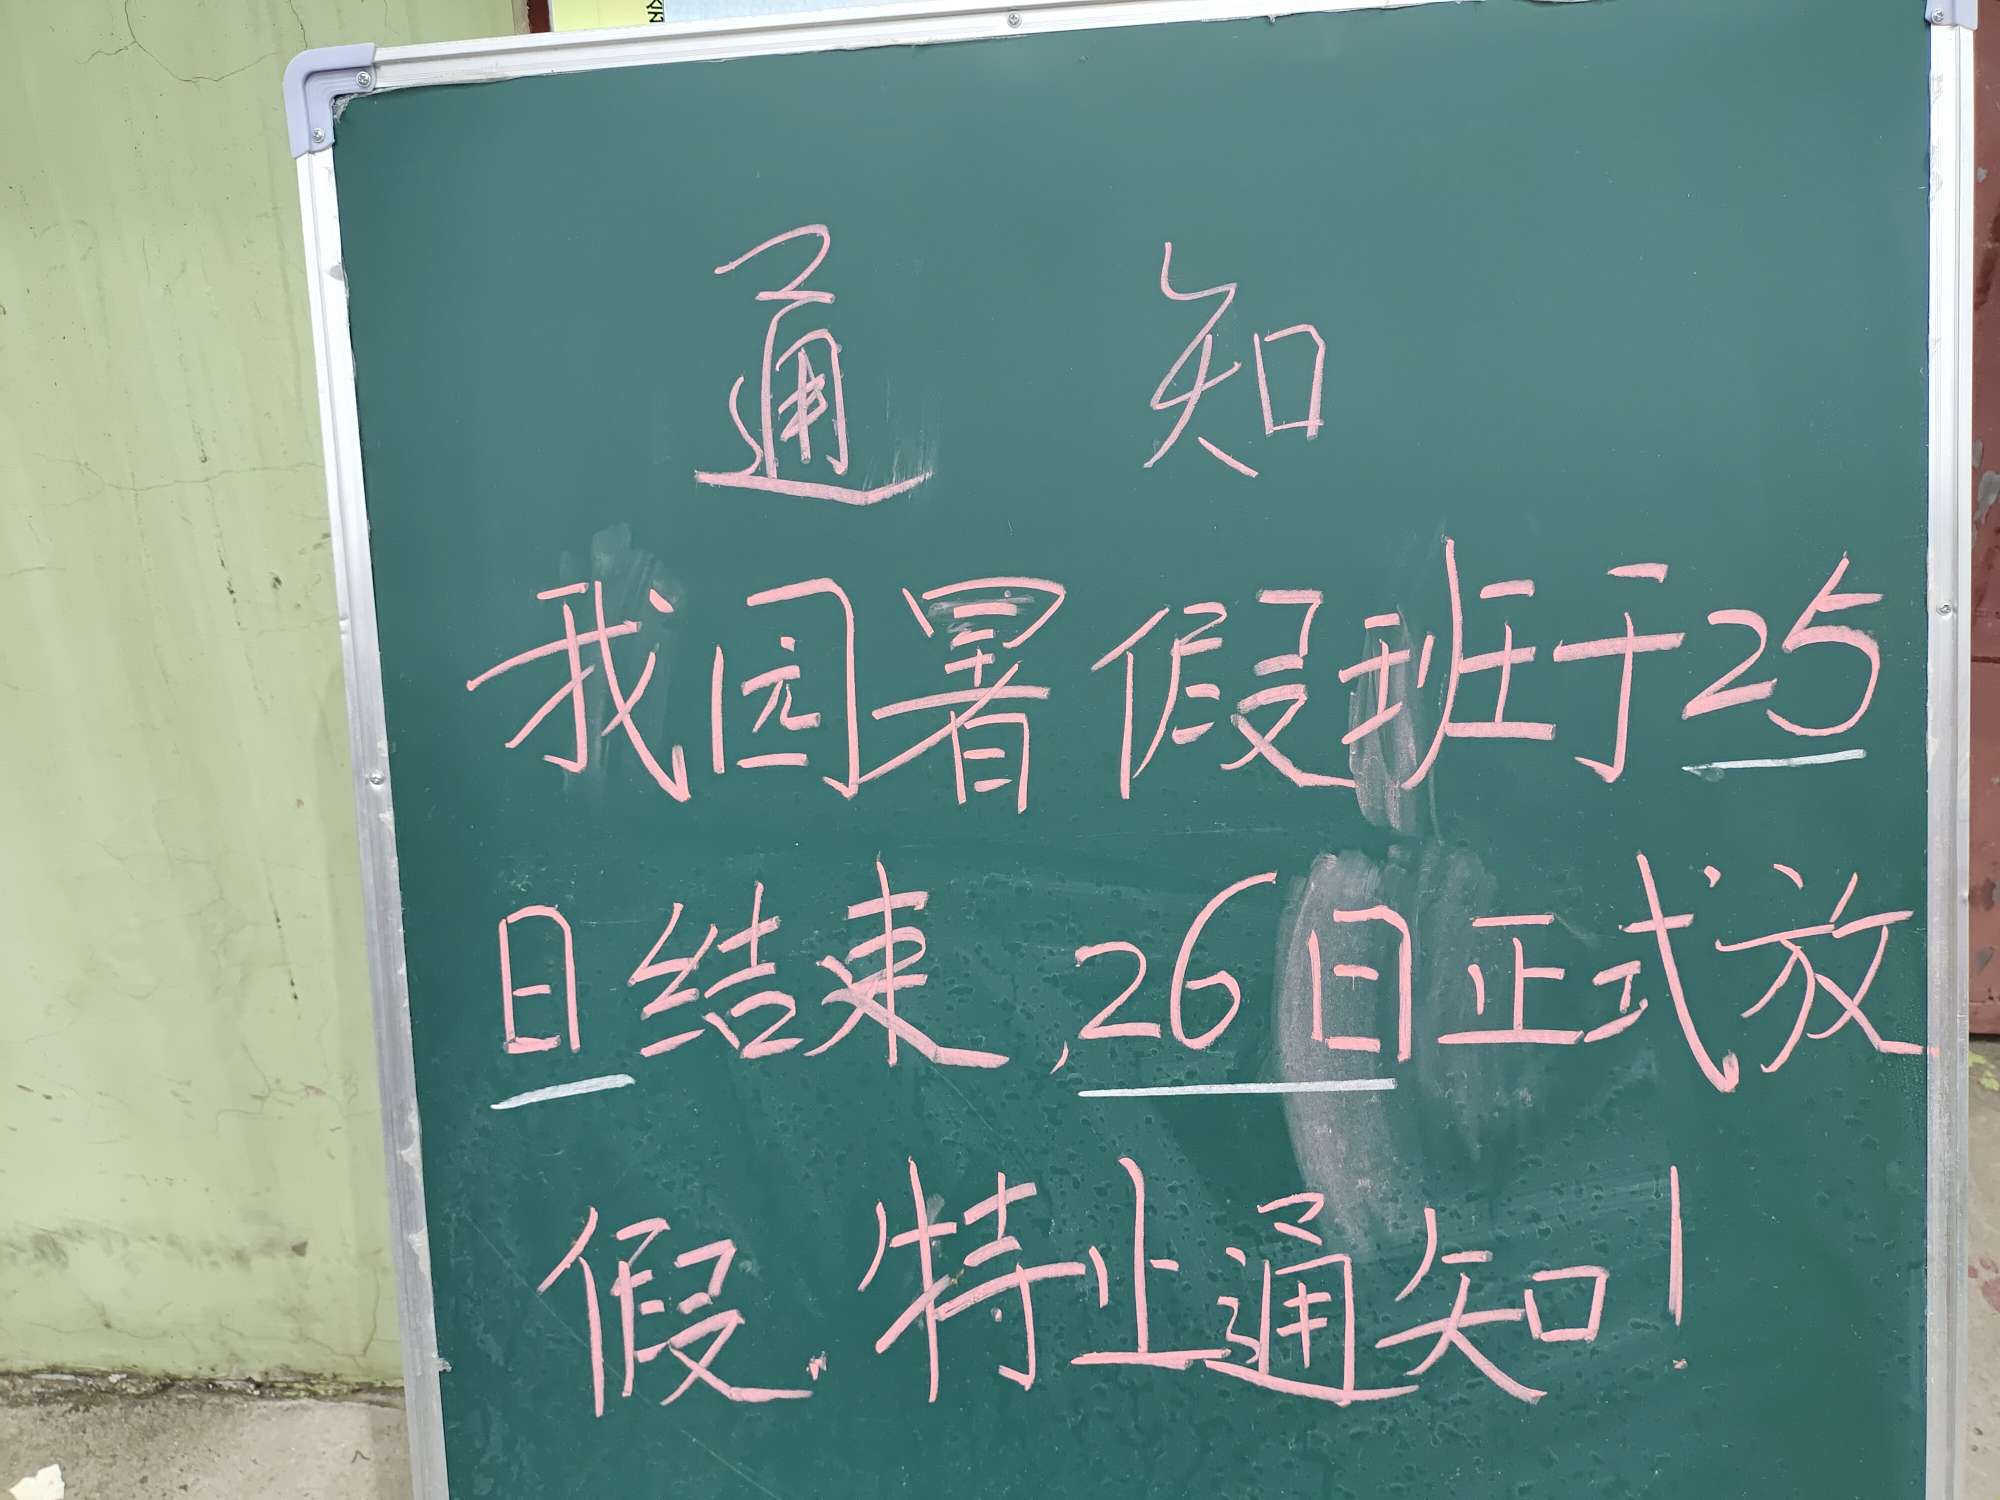 通 知
我园暑假班于25
日结束,26日正式放
假.特止通知!